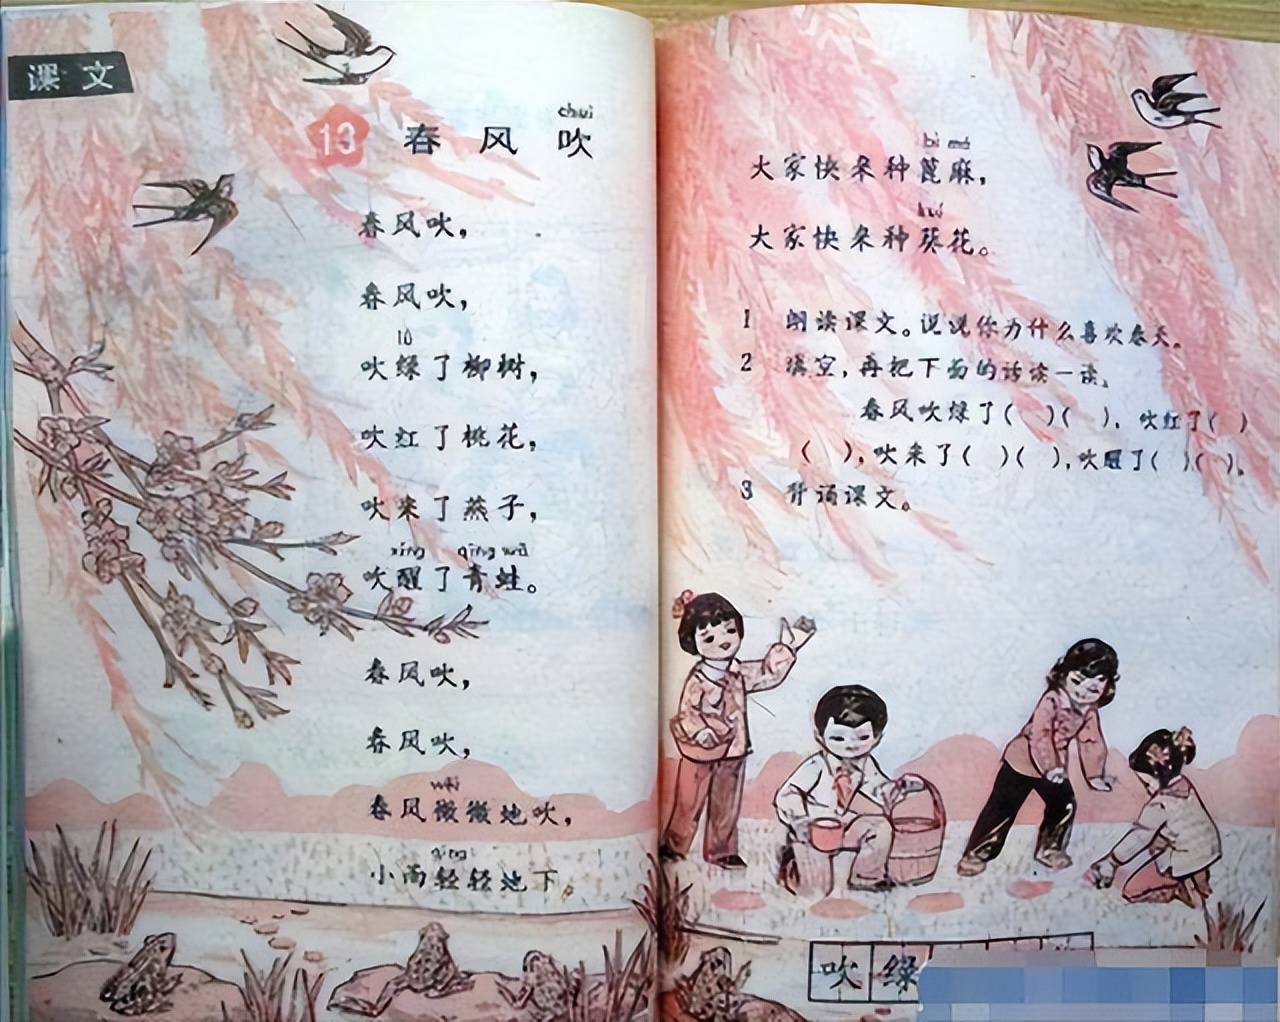 课文
chuī
13 春风吹
春风吹，
春风吹，
lǜ
吹绿了柳树，
吹红了桃花，
吹来了燕子，
xǐng qīng wā
吹醒了青蛙。
春风吹，
春风吹，
wēi
春风微微地吹，
qīng
小雨轻轻地下。
bì má
大家快来种蓖麻，
kuí
大家快来种葵花。
1 朗读课文。说说你为什么喜欢春天。
2 填空，再把下面的话读一读。
春风吹绿了（ ）（ ），吹红了（ ）
（ ），吹来了（ ）（ ），吹醒了（ ）（ ）。
3 背诵课文。
吹 绿